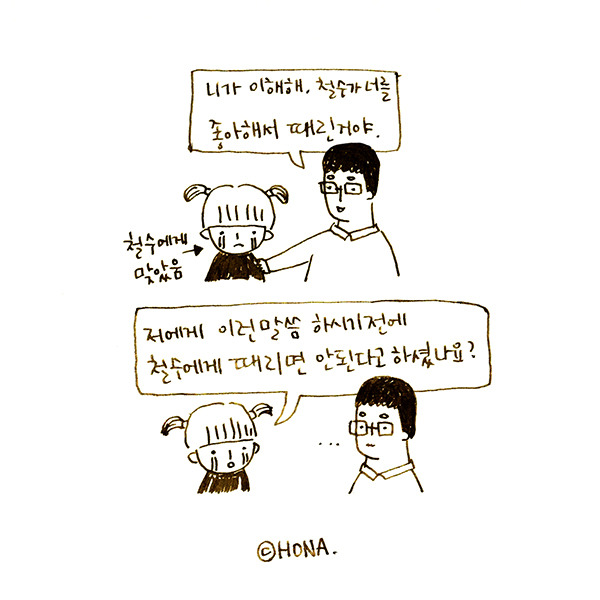 니가 이해해, 철수가 너를
좋아해서 때린거야.
철수에게
맞았음
저에게 이런말씀 하시기전에
철수에게 때리면 안된다고 하셨나요?
...
©HONA.